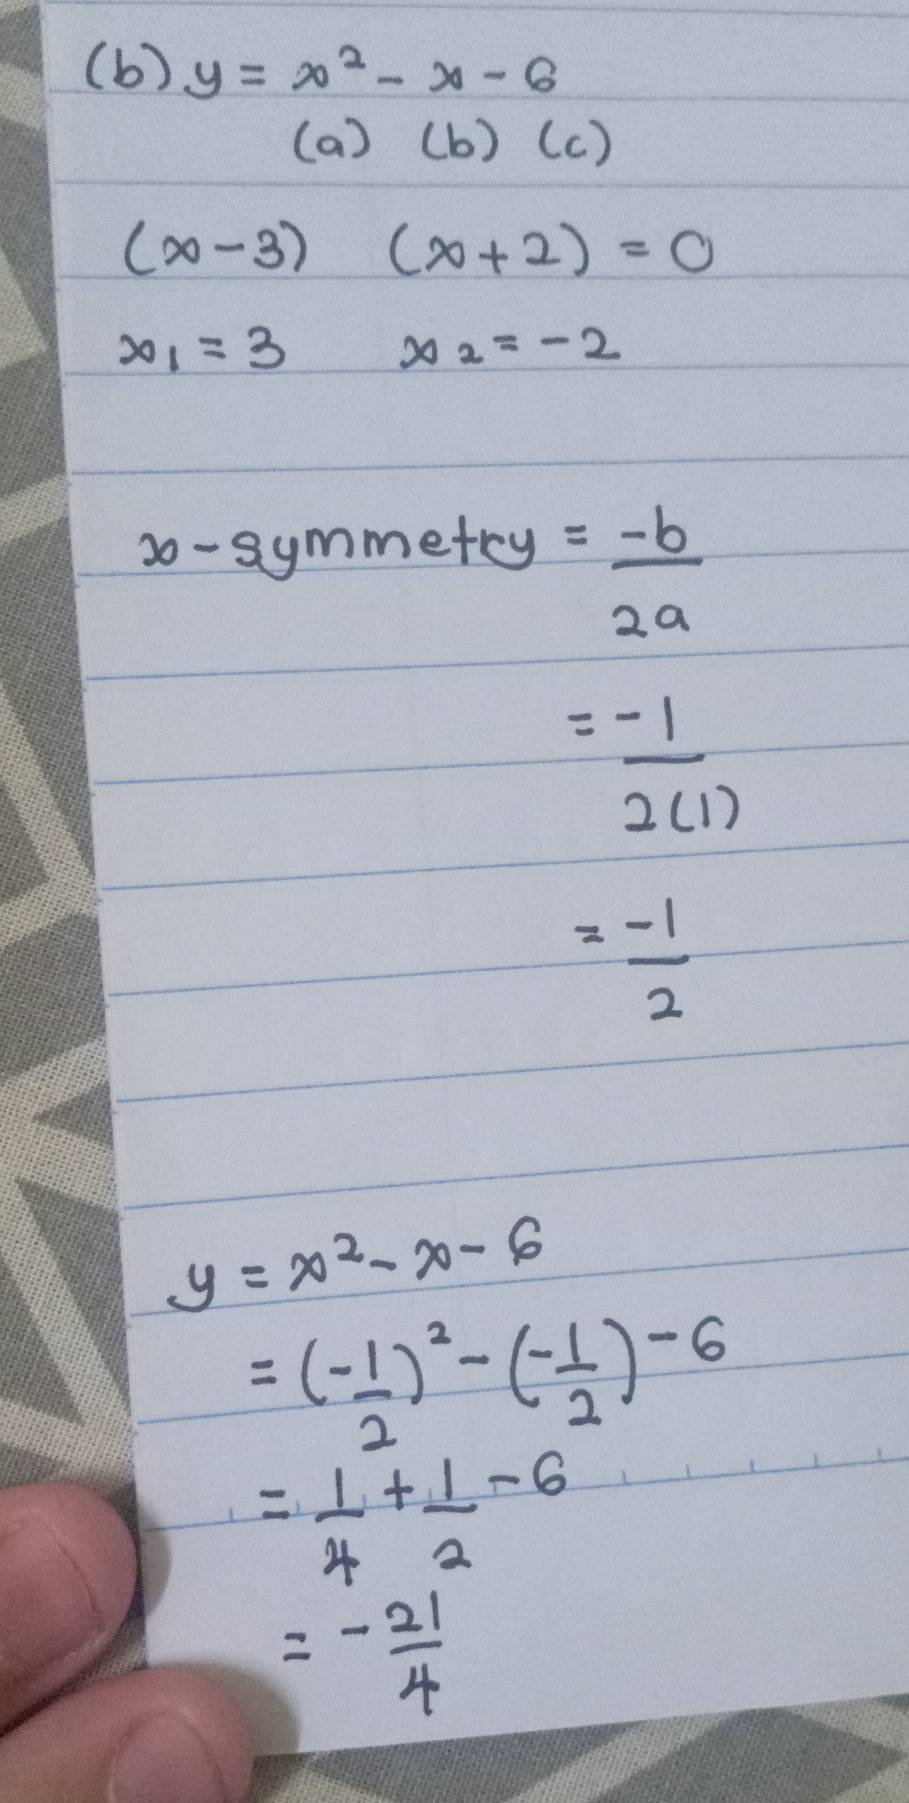 (b) y = x² - x - 6
(a) (b) (c)
(x - 3) (x + 2) = 0
x₁ = 3 x₂ = -2
x - symmetry = -b/2a
= -1/2(1)
= -1/2
y = x² - x - 6
= (-1/2)² - (-1/2) - 6
= 1/4 + 1/2 - 6
= -21/4